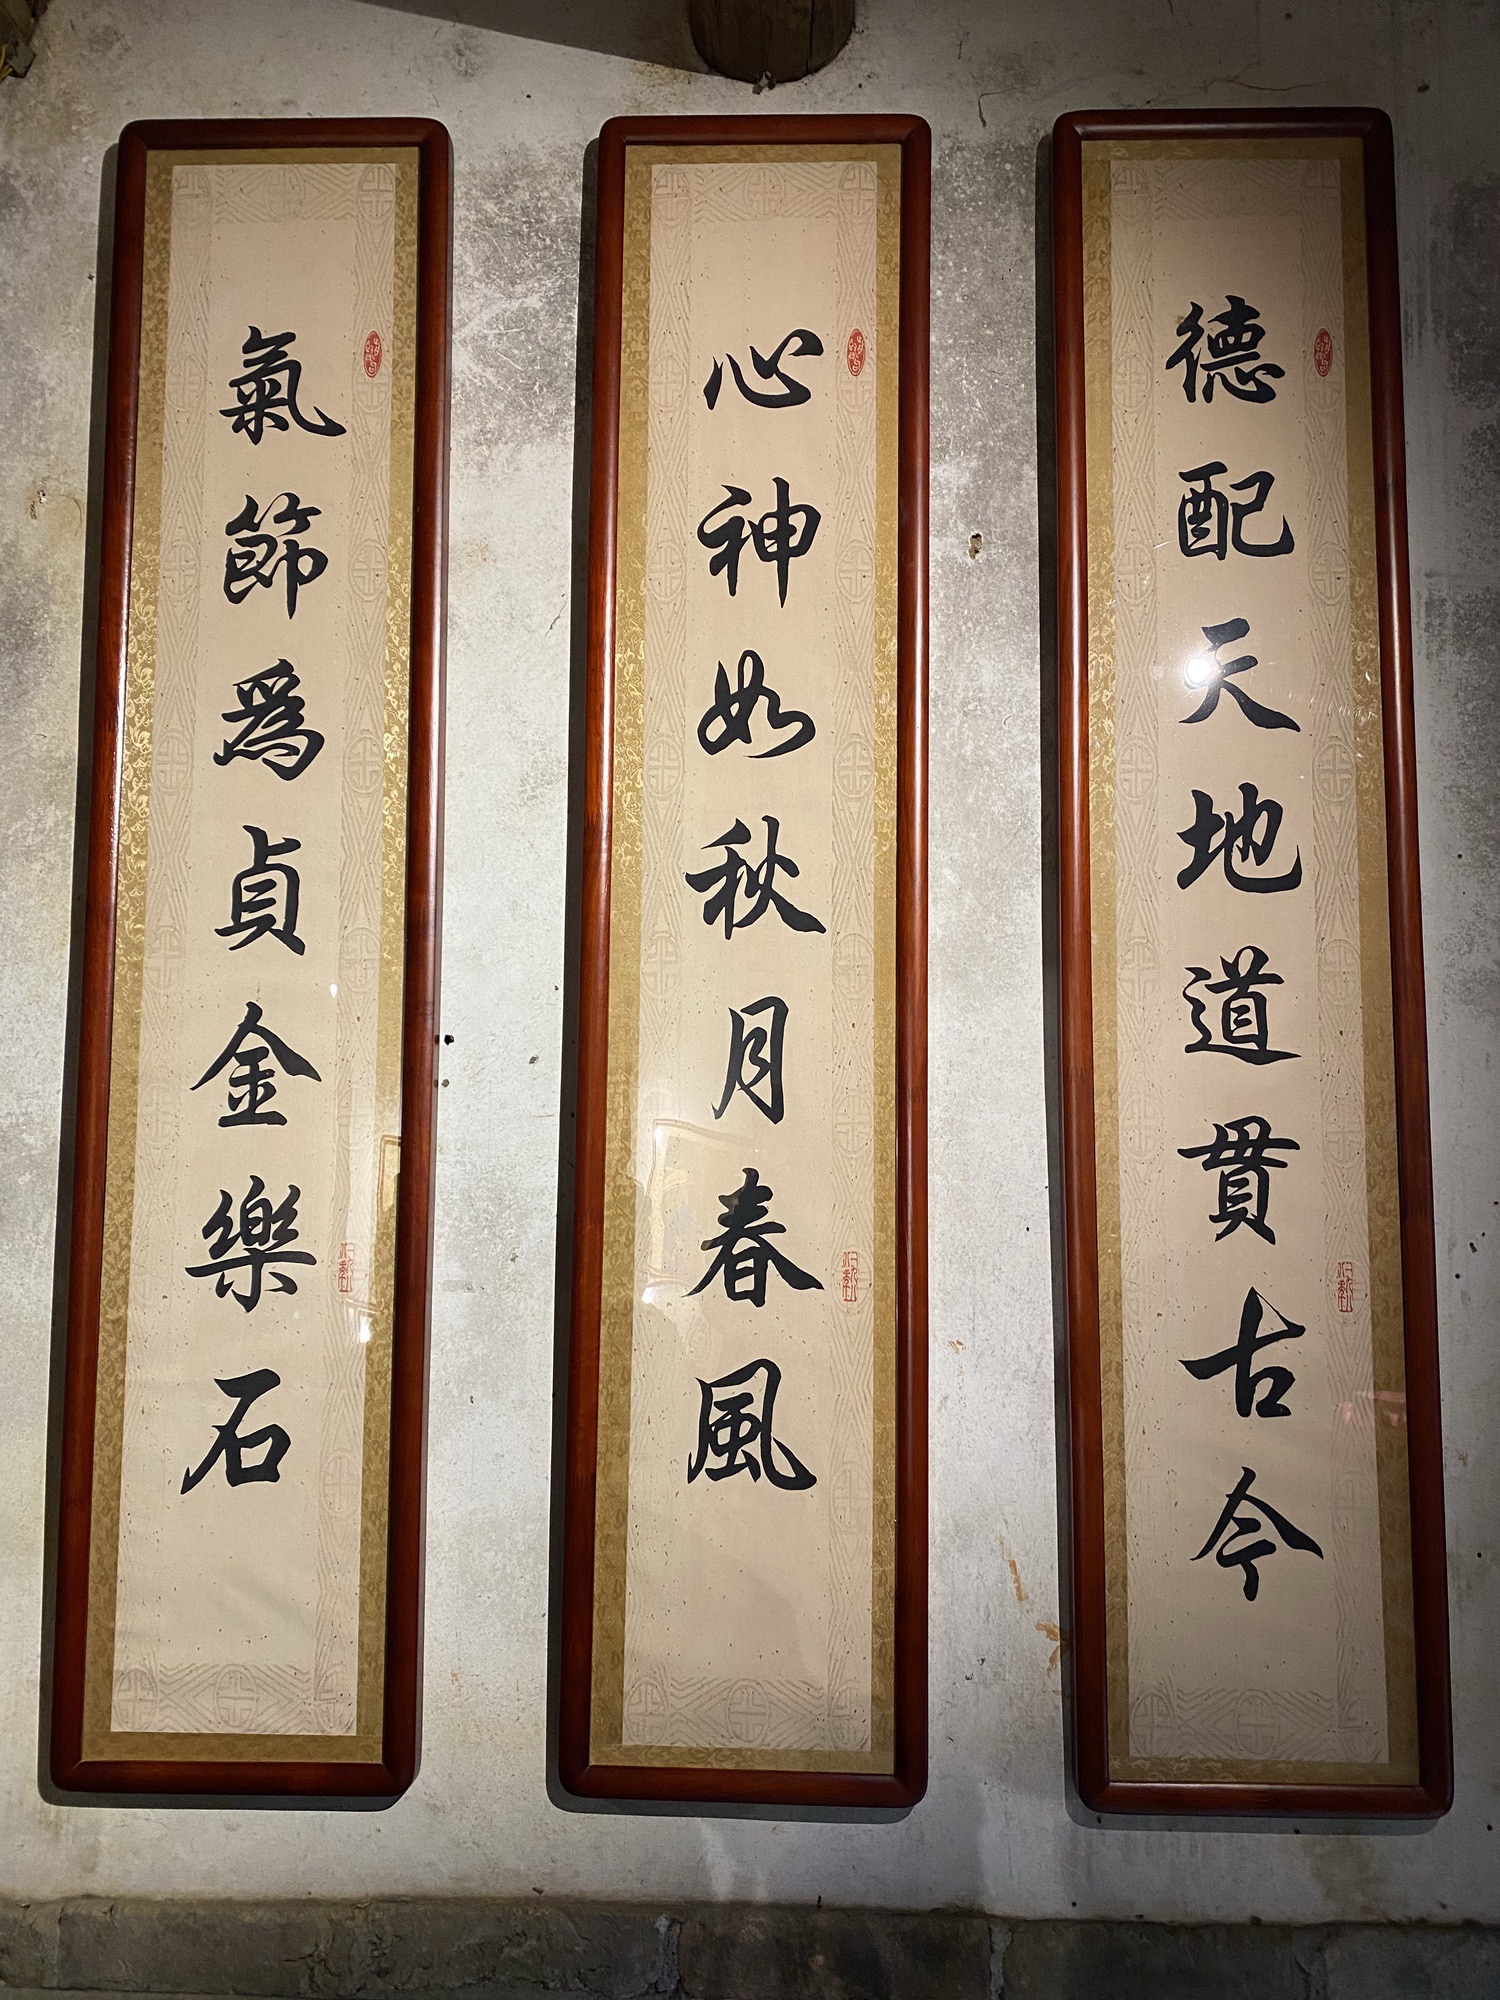 德配天地道贯古今
心神如秋月春風
氣節爲貞金樂石